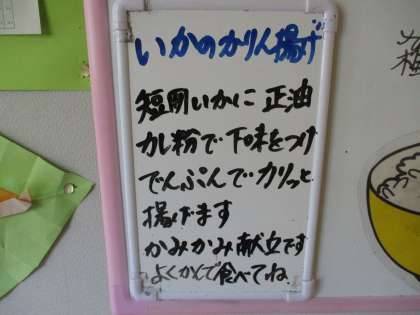 いかのかりん揚げ
短冊いかに正油
カレ粉で下味をつけ
でんぷんでカリっと
揚げます
かみかみ献立です
よくかんで食べてね